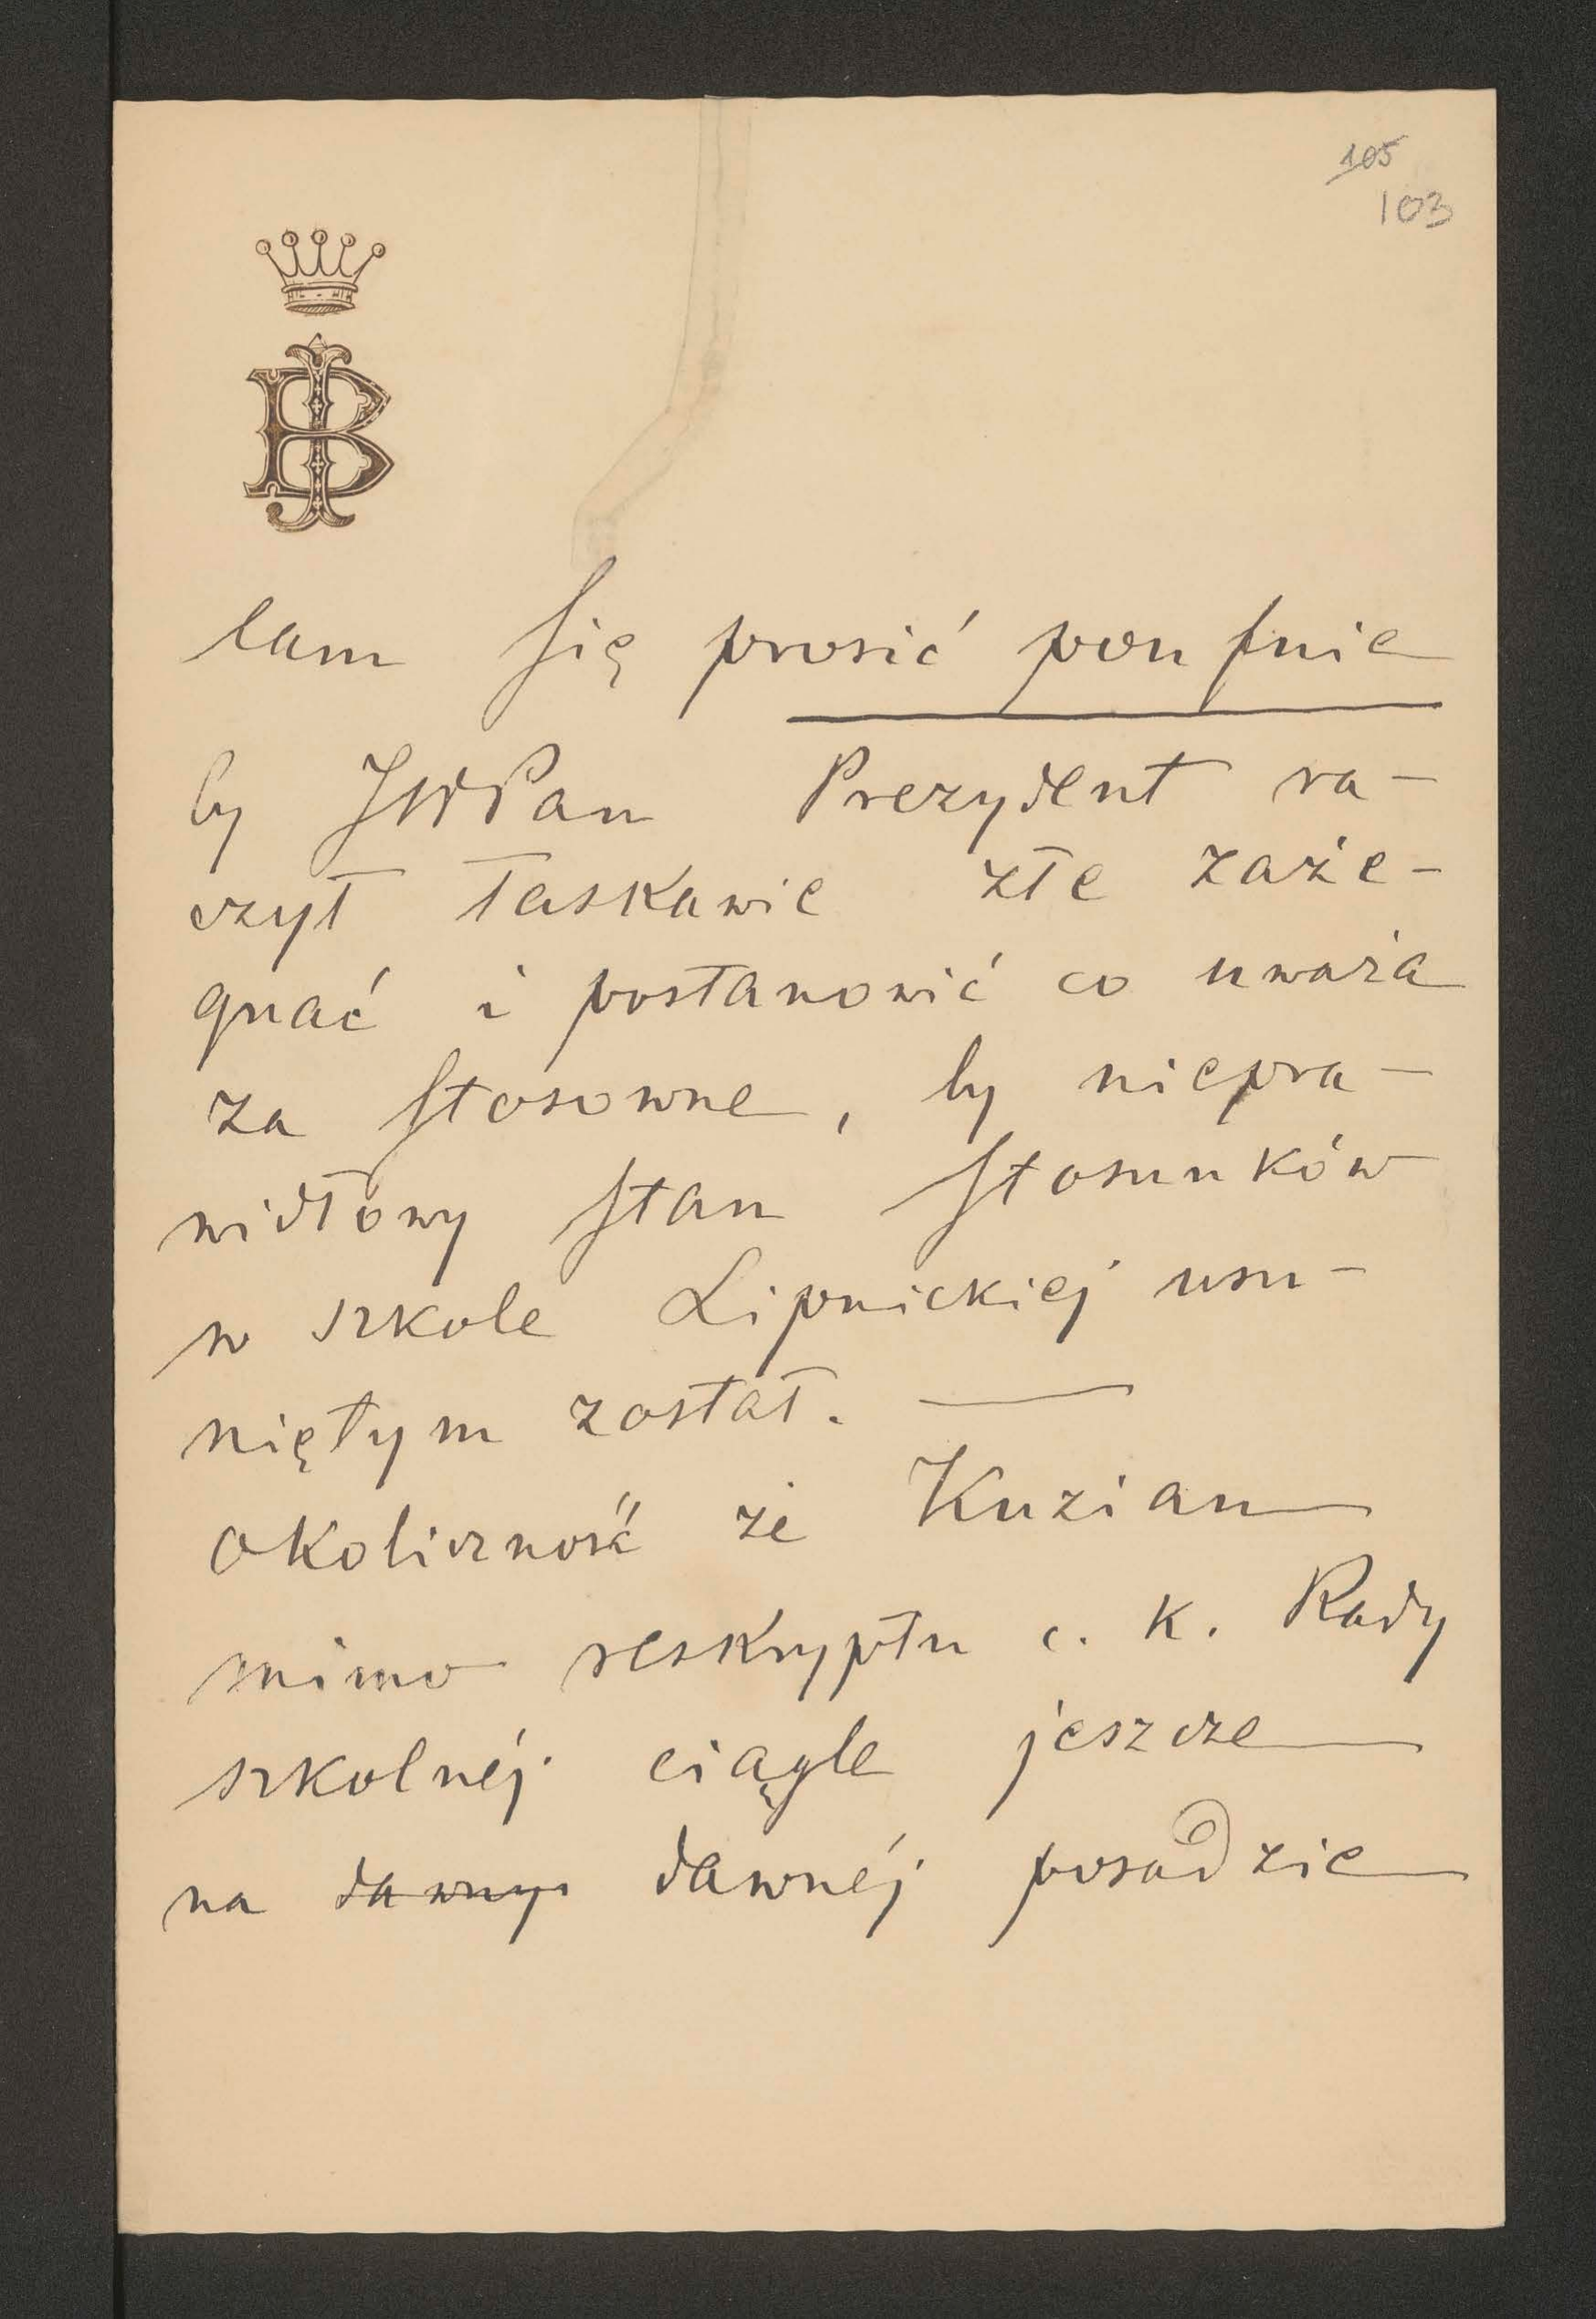 105
103
JB
łam się prosić poufnie
by JWPan Prezydent ra-
czył łaskawie złe zaże-
gnać i postanowić co uważa
za stosowne, by niepra-
widłowy stan stosunków
w szkole Lipnickiej usu-
niętym został. —
Okoliczność że Kuzian
mimo reskryptu c. k. Rady
szkolnéj ciągle jeszcze
na dawnej dawnéj posadzie